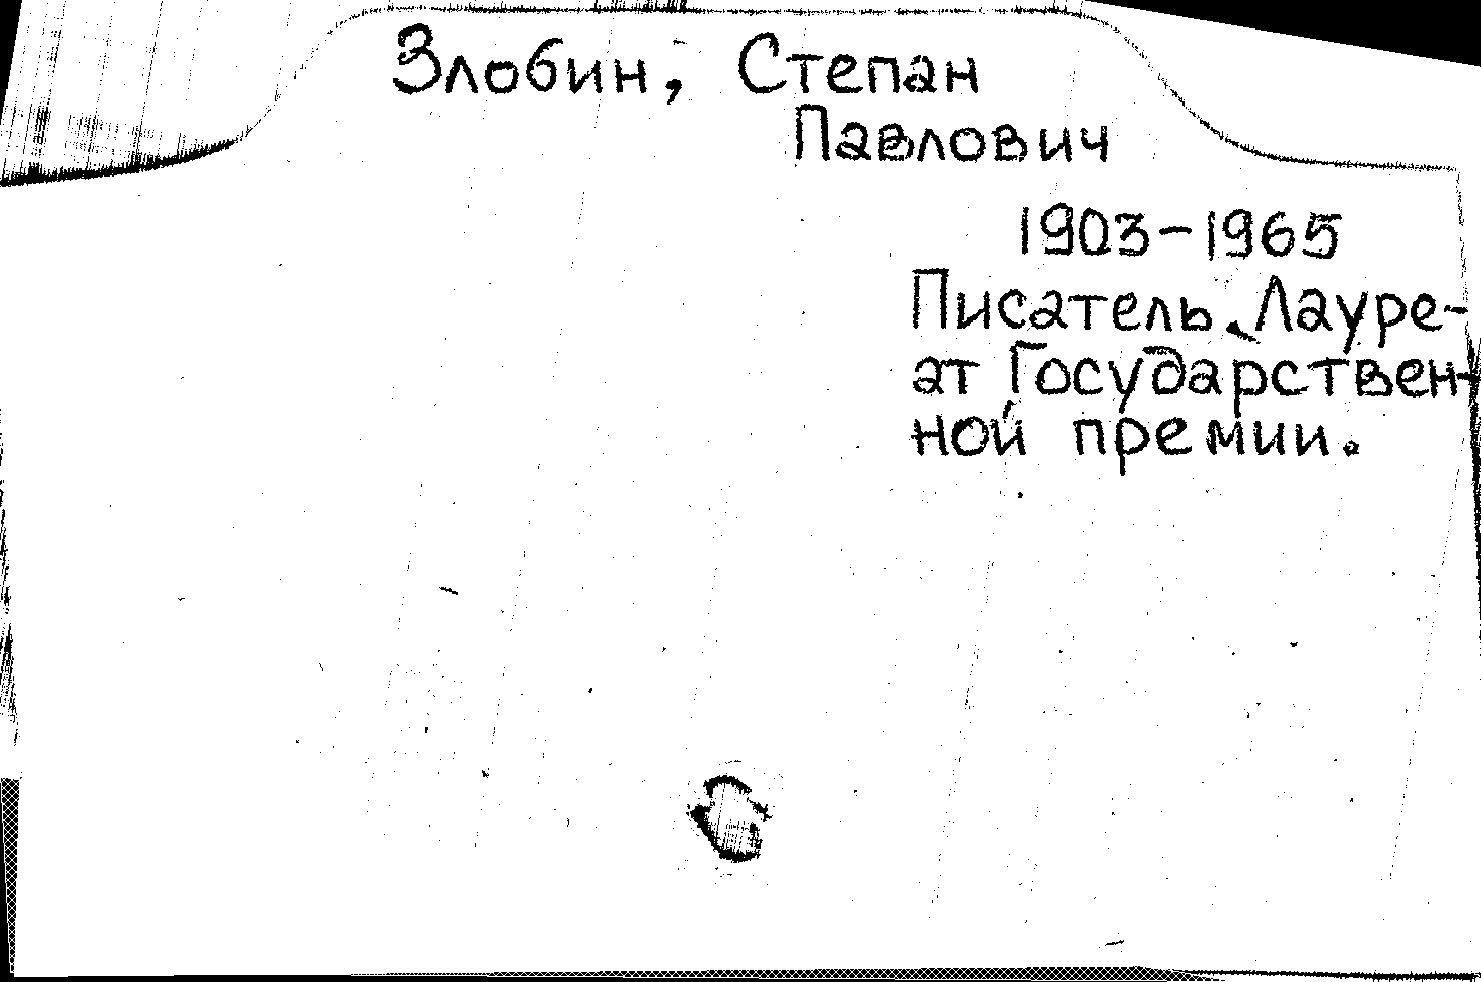 Злобин, Степан
Павлович
1903-1965
Писатель. Лауре-
ат Государствен-
ной премии.